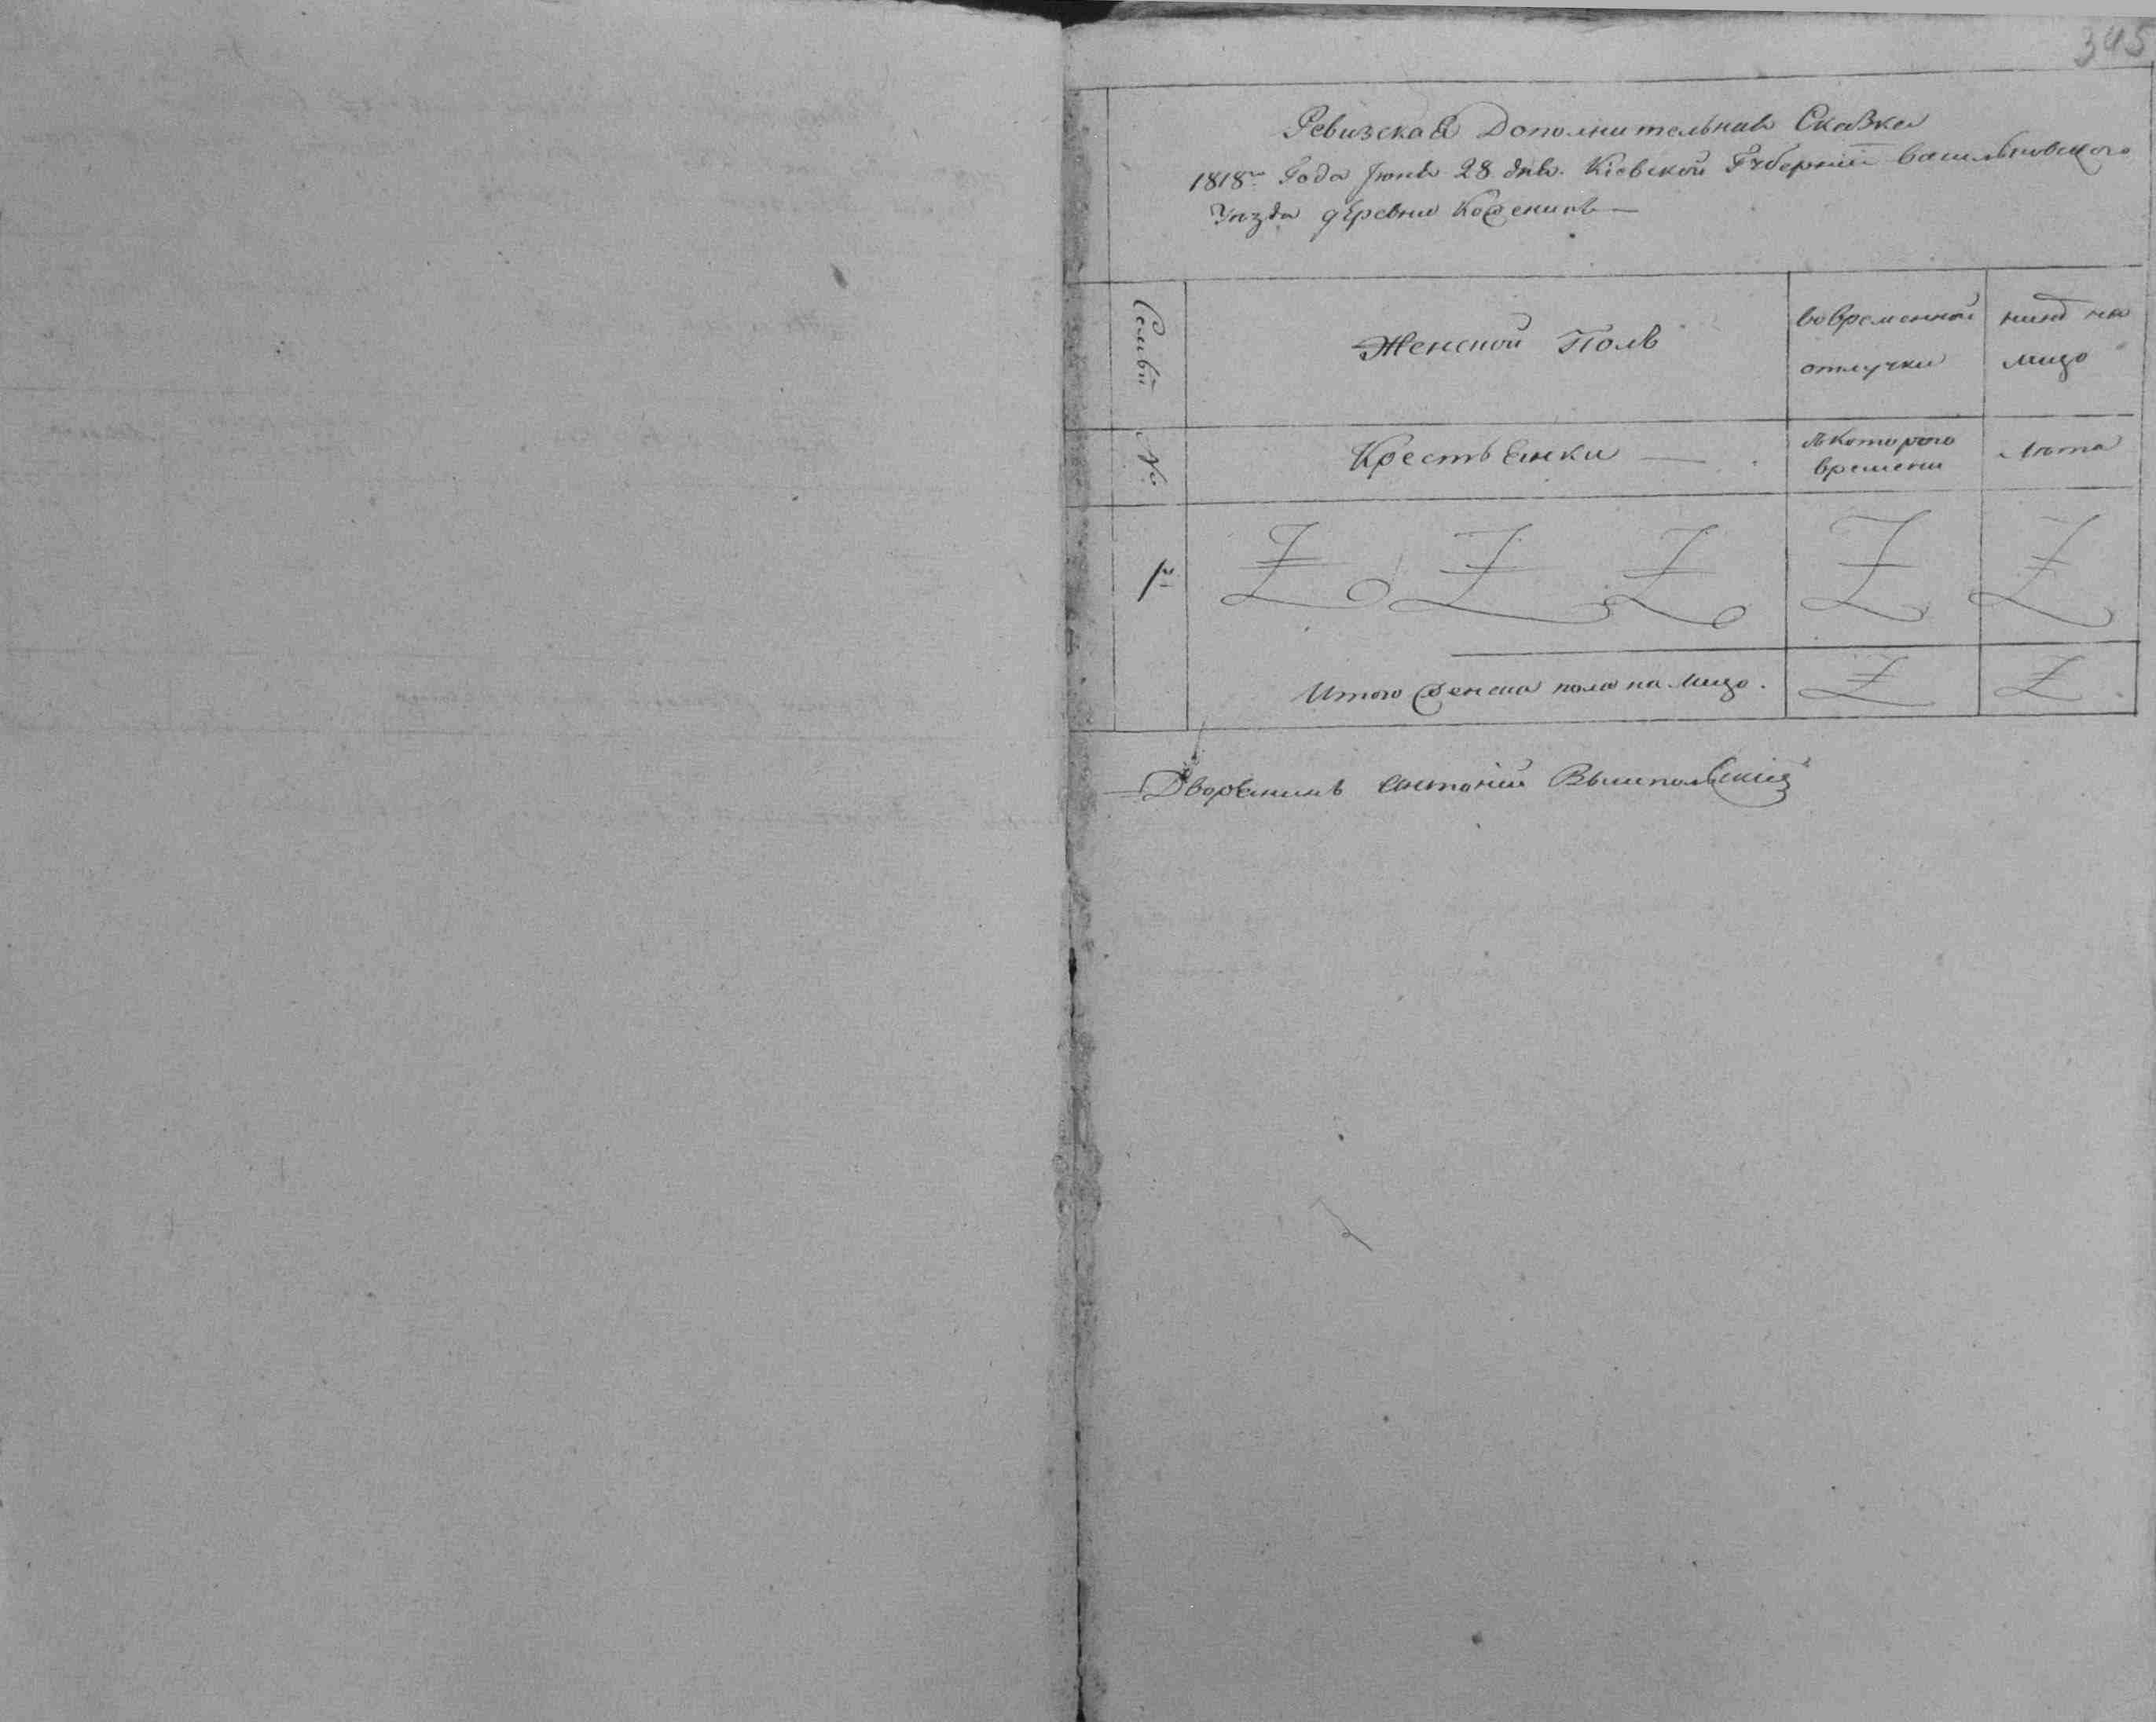 345
Ревизская Дополнительная Сказка
1818го Года Июня 28 дня. Кіевской Губерніи васильковского
Уѣзда деревни Коженикъ
Семьи
Женской Полъ
во временной
отлучки
нинѣ на
лицо
№
Крестьянки
съ которого
времени
лѣта
1
Итого женска пола на лицо.
Дворянинъ антоній Вышпольскій